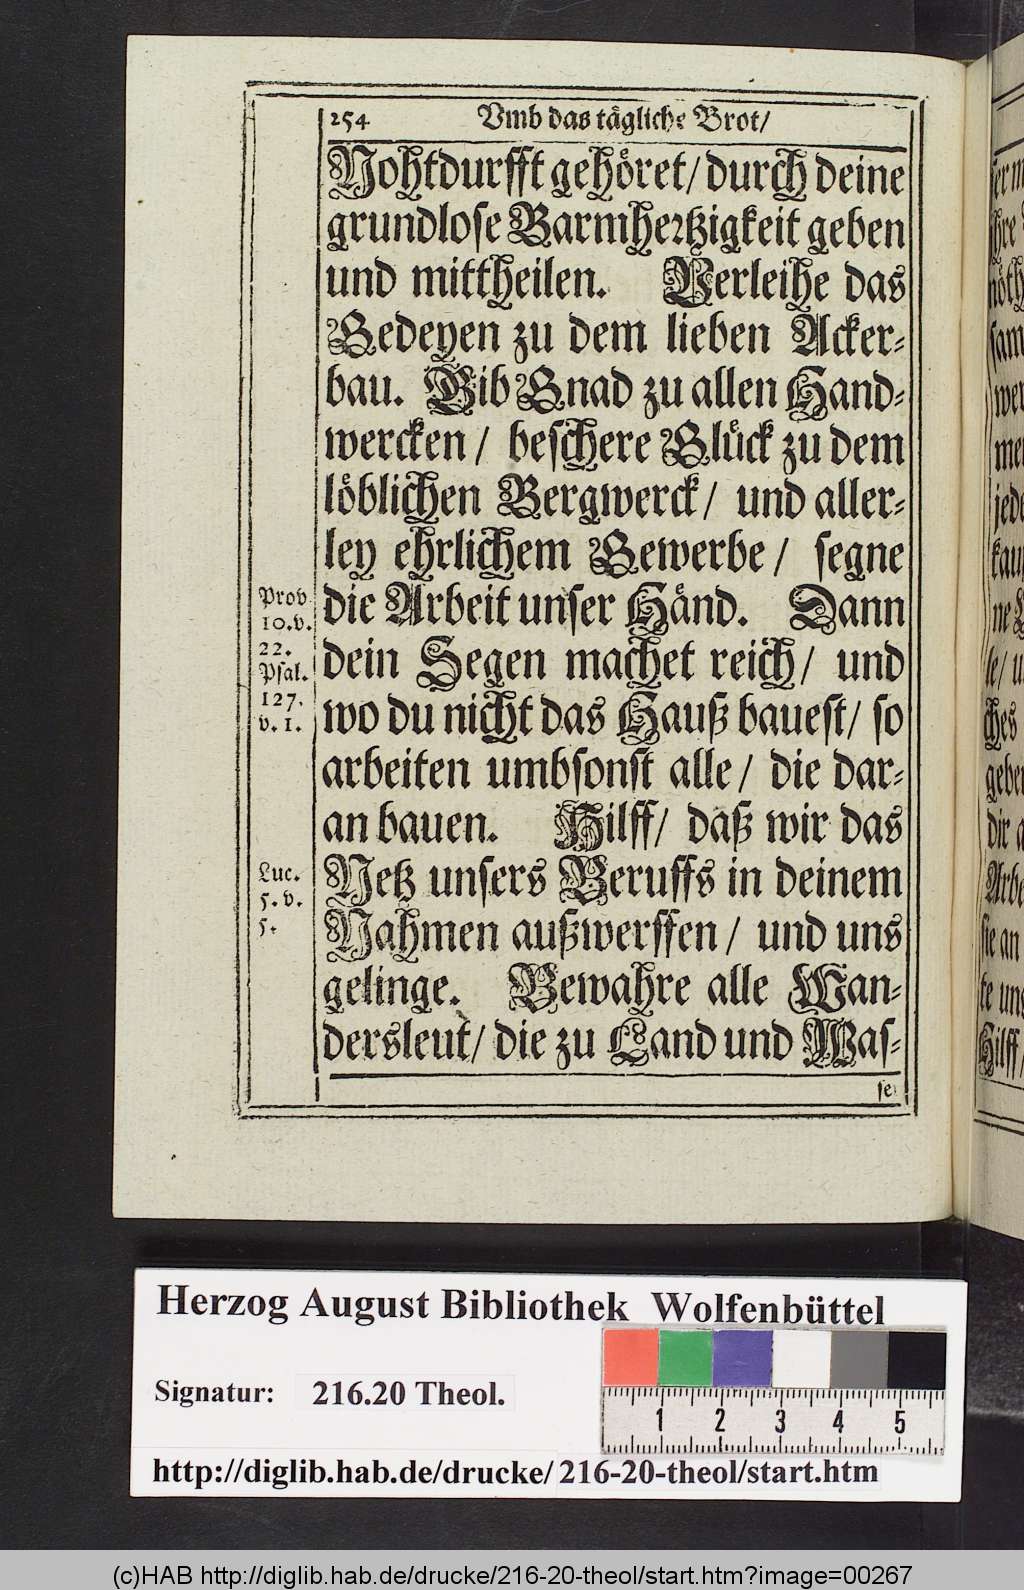 254 Vmb das tägliche Brot/
Nohtdurfft gehöret/ durch deine
grundlose Barmhertzigkeit geben
und mittheilen. Verleihe das
Gedeyen zu dem lieben Acker-
bau. Gib Gnad zu allen Hand-
wercken/ beschere Glück zu dem
löblichen Bergwerck/ und aller-
ley ehrlichem Gewerbe/ segne
die Arbeit unser Händ. Dann
dein Segen machet reich/ und
wo du nicht das Hauß bauest/ so
arbeiten umbsonst alle/ die dar-
an bauen. Hilff/ daß wir das
Netz unsers Beruffs in deinem
Nahmen außwerffen/ und uns
gelinge. Bewahre alle Wan-
dersleut/ die zu Land und Was-
se
Prov
10.v.
22.
Psal.
127.
v. 1.
Luc.
5. v.
5.
Herzog August Bibliothek Wolfenbüttel
Signatur: 216.20 Theol.
1 2 3 4 5
http://diglib.hab.de/drucke/216-20-theol/start.htm
(c)HAB http://diglib.hab.de/drucke/216-20-theol/start.htm?image=00267